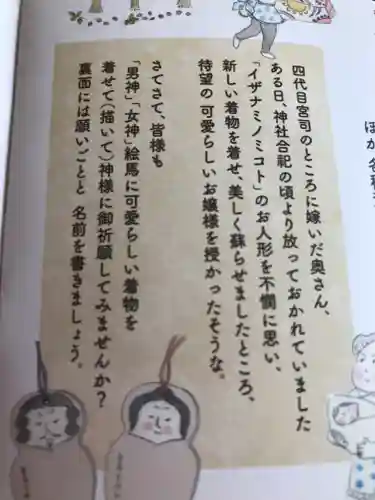 四代目宮司のところに嫁いだ奥さん、
ある日、神社合祀の頃より放っておかれていました
「イザナミノミコト」のお人形を不憫に思い、
新しい着物を着せ、美しく蘇らせましたところ、
待望の可愛らしいお嬢様を授かったそうな。
さてさて、皆様も
「男神」「女神」絵馬に可愛らしい着物を
着せて(描いて)神様に御祈願してみませんか?
裏面には願いごとと 名前を書きましょう。